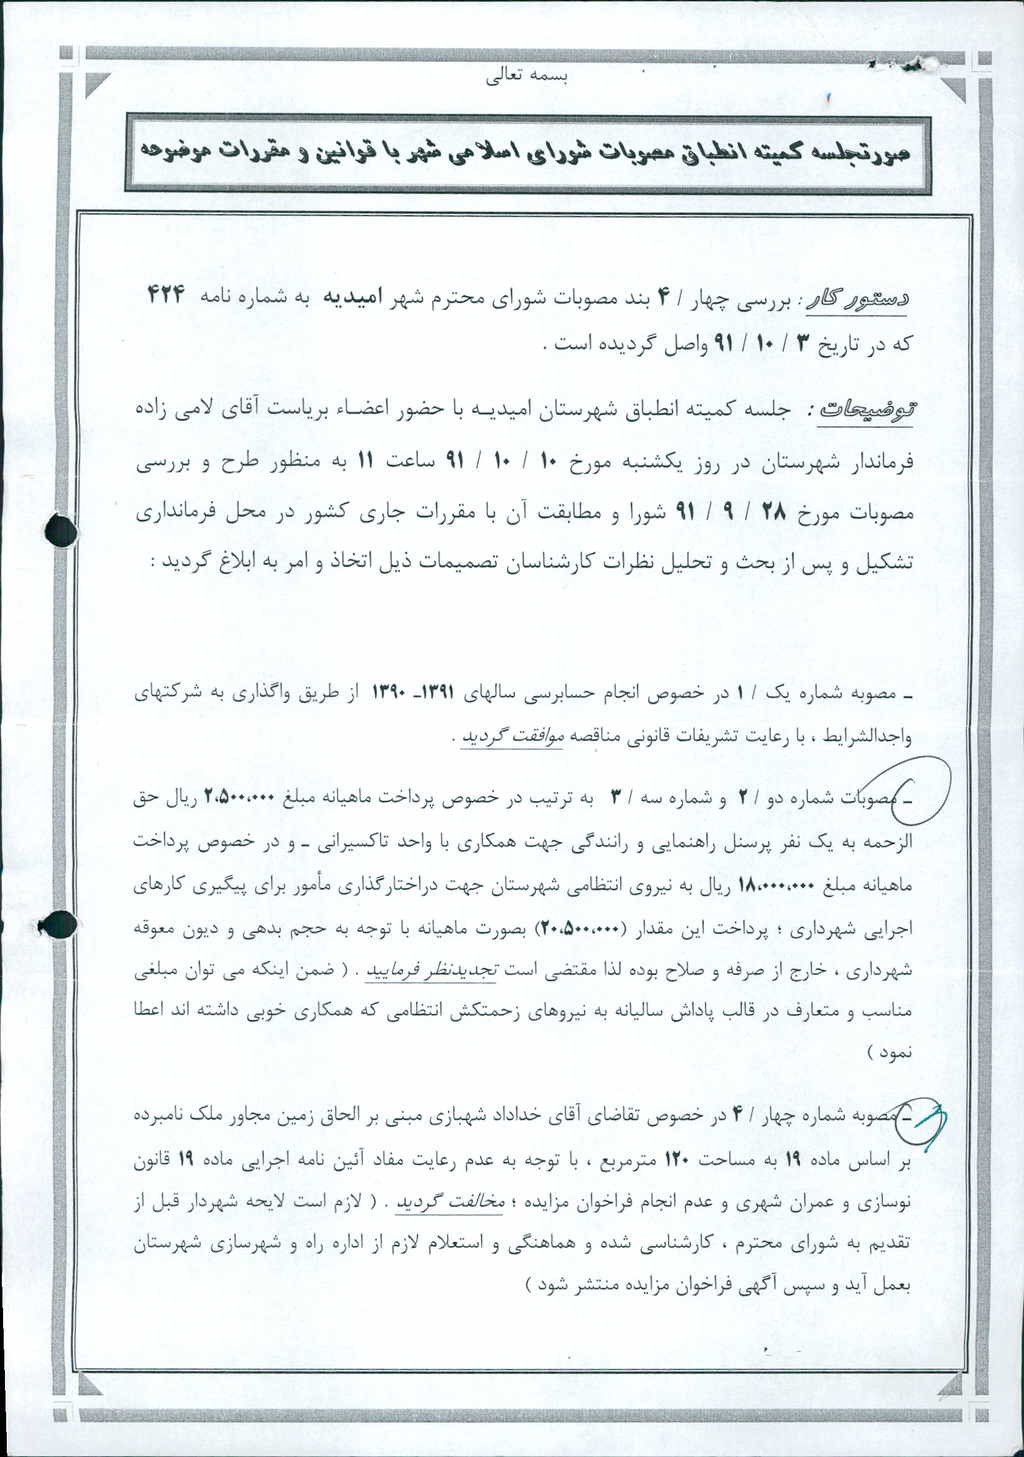 بسمه تعالی
صورتجلسه کمیته انطباق مصوبات شورای اسلامی شهر با قوانین و مقررات موضوعه
دستور کار : بررسی چهار / ۴ بند مصوبات شورای محترم شهر امیدیه به شماره نامه ۴۲۴
که در تاریخ ۳ / ۱۰ / ۹۱ واصل گردیده است .
توضیحات : جلسه کمیته انطباق شهرستان امیدیه با حضور اعضاء بریاست آقای لامی زاده
فرماندار شهرستان در روز یکشنبه مورخ ۱۰ / ۱۰ / ۹۱ ساعت ۱۱ به منظور طرح و بررسی
مصوبات مورخ ۲۸ / ۹ / ۹۱ شورا و مطابقت آن با مقررات جاری کشور در محل فرمانداری
تشکیل و پس از بحث و تحلیل نظرات کارشناسان تصمیمات ذیل اتخاذ و امر به ابلاغ گردید :
ـ مصوبه شماره یک / ۱ در خصوص انجام حسابرسی سالهای ۱۳۹۱ـ ۱۳۹۰ از طریق واگذاری به شرکتهای
واجدالشرایط ، با رعایت تشریفات قانونی مناقصه موافقت گردید .
ـ مصوبات شماره دو / ۲ و شماره سه / ۳ به ترتیب در خصوص پرداخت ماهیانه مبلغ ۲،۵۰۰،۰۰۰ ریال حق
الزحمه به یک نفر پرسنل راهنمایی و رانندگی جهت همکاری با واحد تاکسیرانی ـ و در خصوص پرداخت
ماهیانه مبلغ ۱۸،۰۰۰،۰۰۰ ریال به نیروی انتظامی شهرستان جهت دراختارگذاری مأمور برای پیگیری کارهای
اجرایی شهرداری ؛ پرداخت این مقدار (۲۰،۵۰۰،۰۰۰) بصورت ماهیانه با توجه به حجم بدهی و دیون معوقه
شهرداری ، خارج از صرفه و صلاح بوده لذا مقتضی است تجدیدنظر فرمایید . ( ضمن اینکه می توان مبلغی
مناسب و متعارف در قالب پاداش سالیانه به نیروهای زحمتکش انتظامی که همکاری خوبی داشته اند اعطا
نمود )
ـ مصوبه شماره چهار / ۴ در خصوص تقاضای آقای خداداد شهبازی مبنی بر الحاق زمین مجاور ملک نامبرده
بر اساس ماده ۱۹ به مساحت ۱۲۰ مترمربع ، با توجه به عدم رعایت مفاد آئین نامه اجرایی ماده ۱۹ قانون
نوسازی و عمران شهری و عدم انجام فراخوان مزایده ؛ مخالفت گردید . ( لازم است لایحه شهردار قبل از
تقدیم به شورای محترم ، کارشناسی شده و هماهنگی و استعلام لازم از اداره راه و شهرسازی شهرستان
بعمل آید و سپس آگهی فراخوان مزایده منتشر شود )